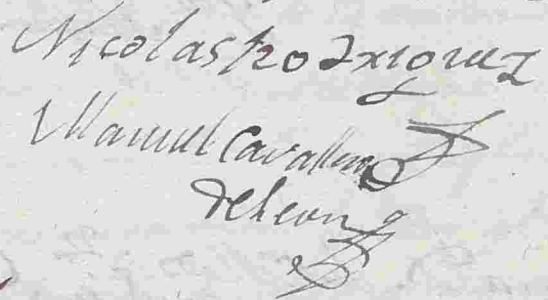 Nicolas Rodriguez
Manuel Cavallero
de Leon